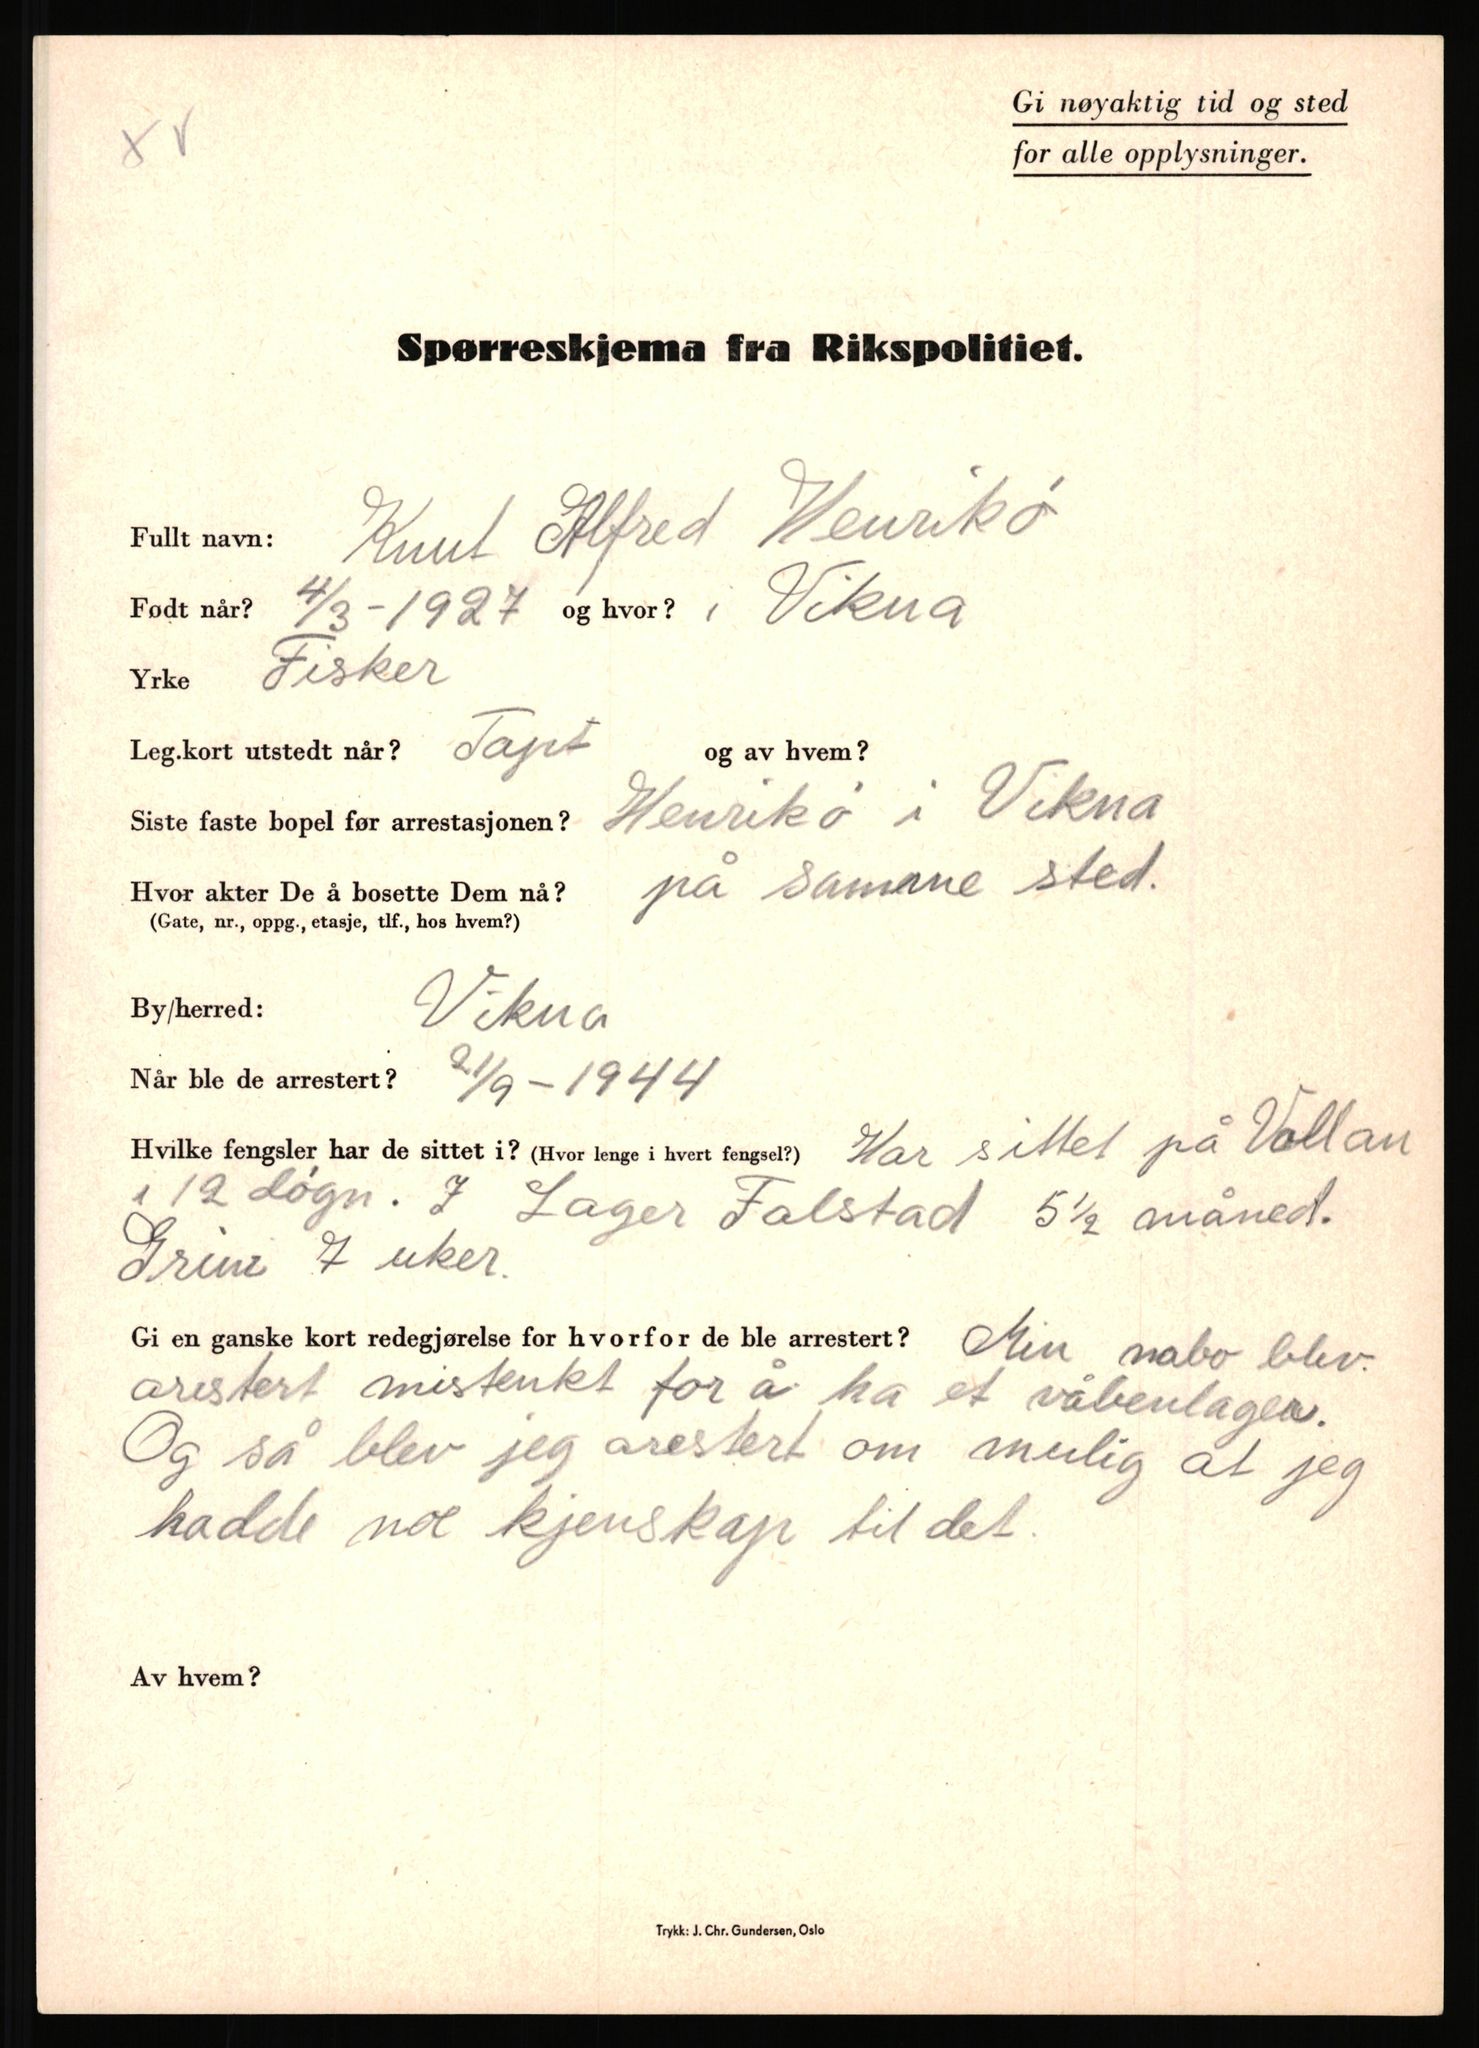 x V
Gi nøyaktig tid og sted
for alle opplysninger.
Spørreskjema fra Rikspolitiet.
Fullt navn: Knut Alfred Henrikö
Født når? 4/3-1927 og hvor? i Vikna
Yrke Fisker
Leg.kort utstedt når? Tapt og av hvem?
Siste faste bopel før arrestasjonen? Henrikö i Vikna
Hvor akter De å bosette Dem nå? på samme sted.
(Gate, nr., oppg., etasje, tlf., hos hvem?)
By/herred: Vikna
Når ble de arrestert? 21/9-1944
Hvilke fengsler har de sittet i? (Hvor lenge i hvert fengsel?) Har sittet på Vollan
i 12 døgn. I Lager Falstad 5 1/2 måned.
Grini 7 uker.
Gi en ganske kort redegjørelse for hvorfor de ble arrestert? Min nabo blev.
arestert mistenkt for å ha et våbenlager.
Og så blev jeg arestert om mulig at jeg
hadde noe kjenskap til det.
Av hvem?
Trykk: J. Chr. Gundersen, Oslo